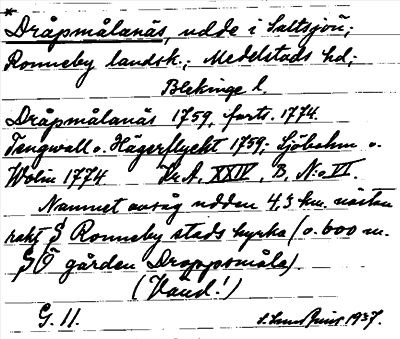 *
Dråpmålanäs, udde i Saltsjön;
Ronneby landsk.; Medelstads hd;
Blekinge l.
Dråpmålanäs 1759, forts. 1774.
Tengwall o. Hägerflycht 1759; Sjöbohm o.
Wolin 1774 Kr.A. XXIV, B, N:o VI.
Namnet avsåg udden 4,3 km. nästan
rakt S Ronneby stads kyrka (o. 600 m.
SÖ gården Droppsmåla).
(Vänd!)
G. 11. 1937.